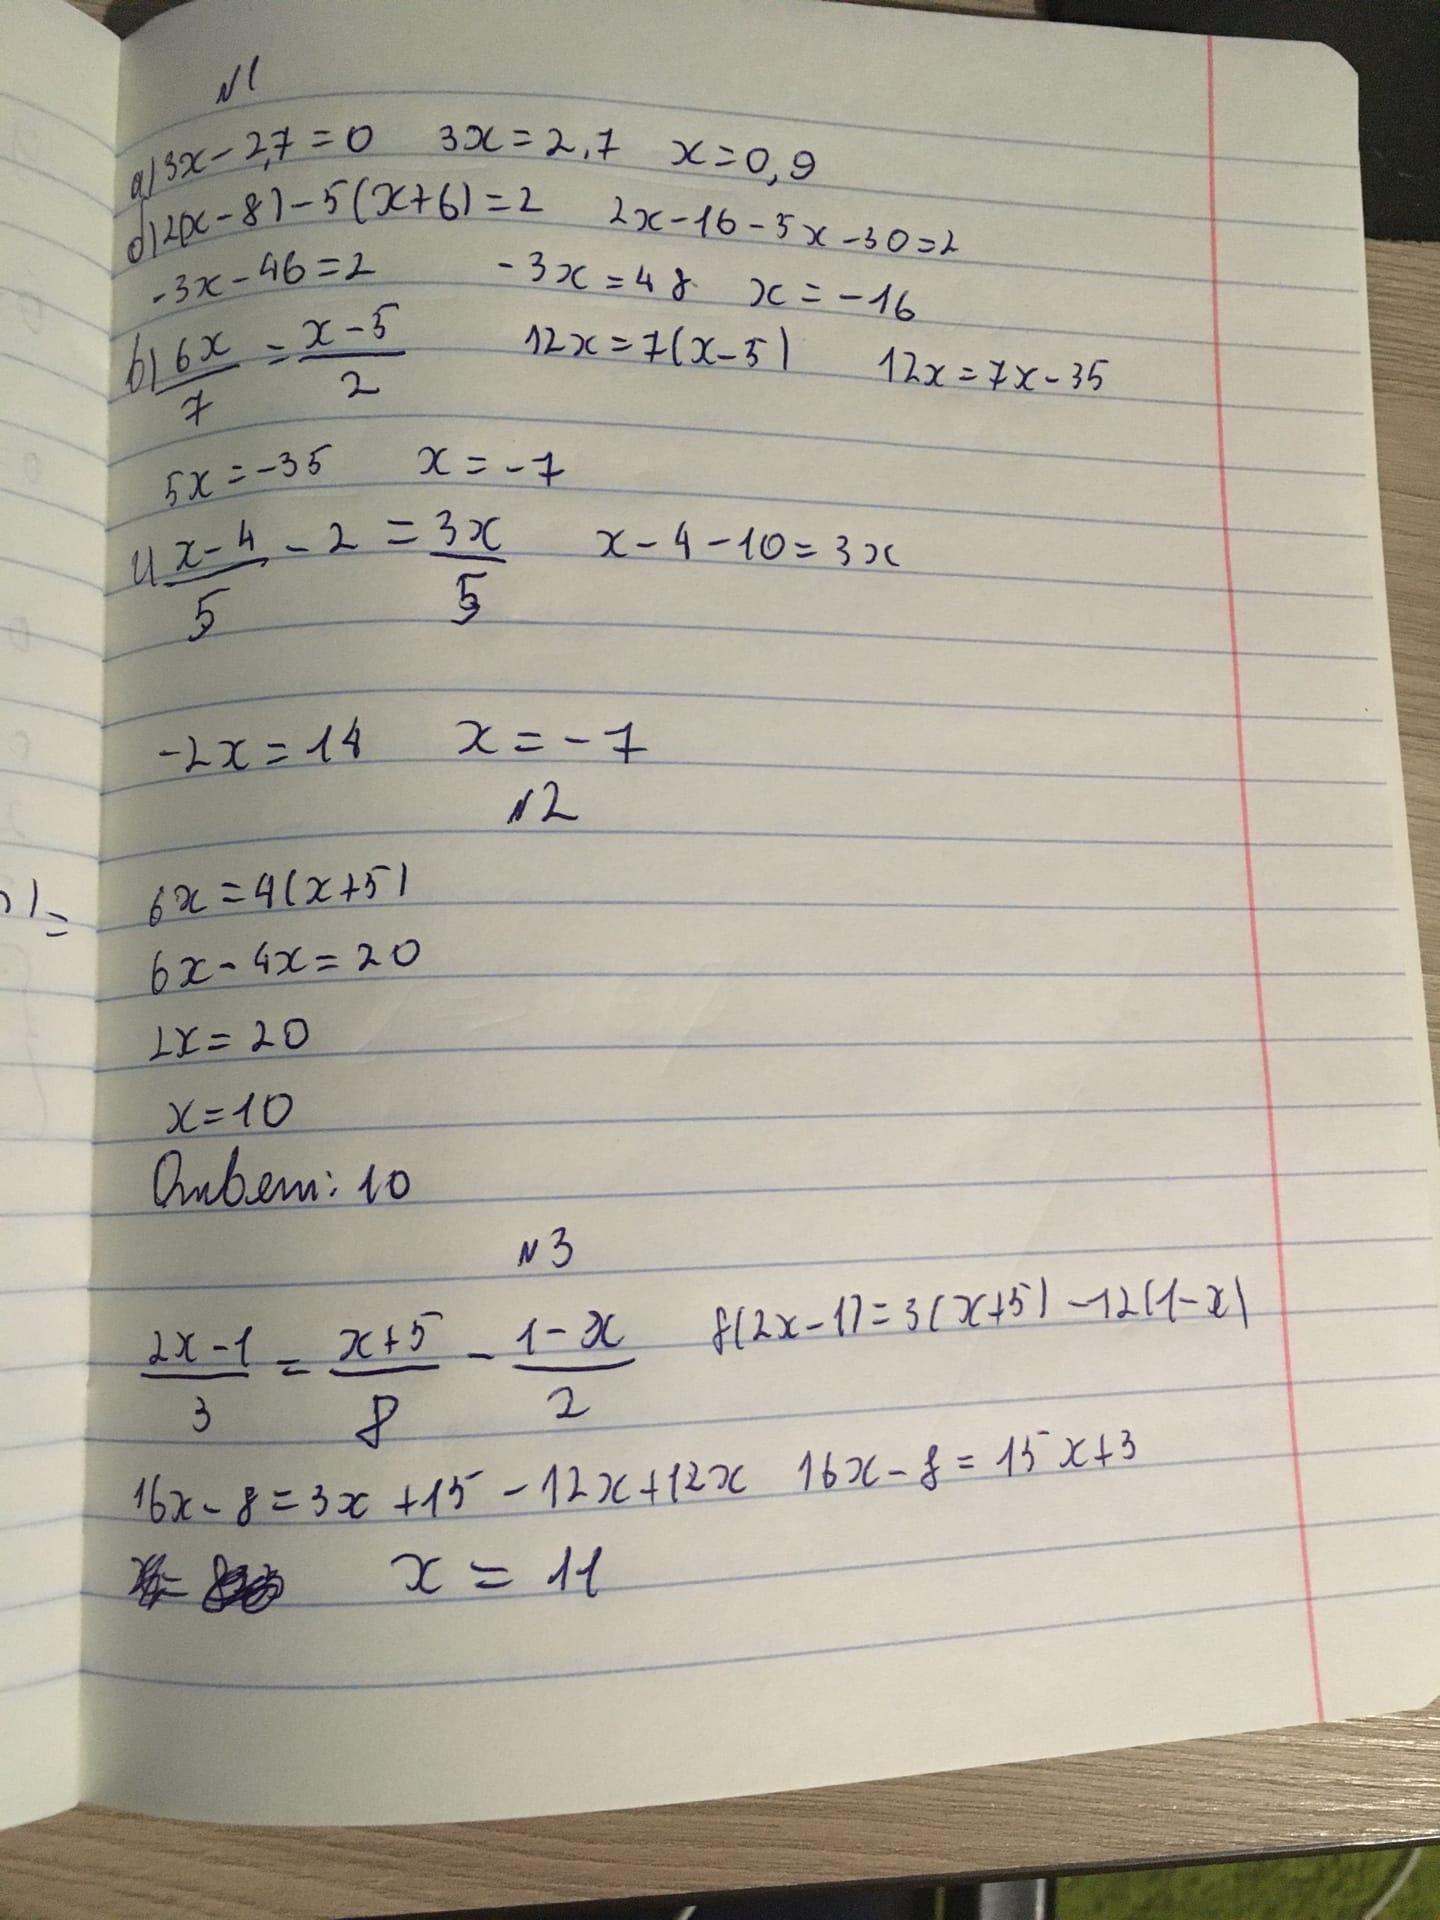 №1
а) 3x - 2,7 = 0 3x = 2,7 x = 0,9
б) 2(x - 8) - 5(x + 6) = 2 2x - 16 - 5x - 30 = 2
-3x - 46 = 2 -3x = 48 x = -16
в) 6x/7 = x-5/2 12x = 7(x - 5) 12x = 7x - 35
5x = -35 x = -7
4) x-4/5 - 2 = 3x/5 x - 4 - 10 = 3x
-2x = 14 x = -7
№2
6x = 4(x + 5)
6x - 4x = 20
2x = 20
x = 10
Ответ: 10
№3
2x-1/3 = x+5/8 - 1-x/2 8(2x - 1) = 3(x + 5) - 12(1 - x)
16x - 8 = 3x + 15 - 12x + 12x 16x - 8 = 15x + 3
x = 11